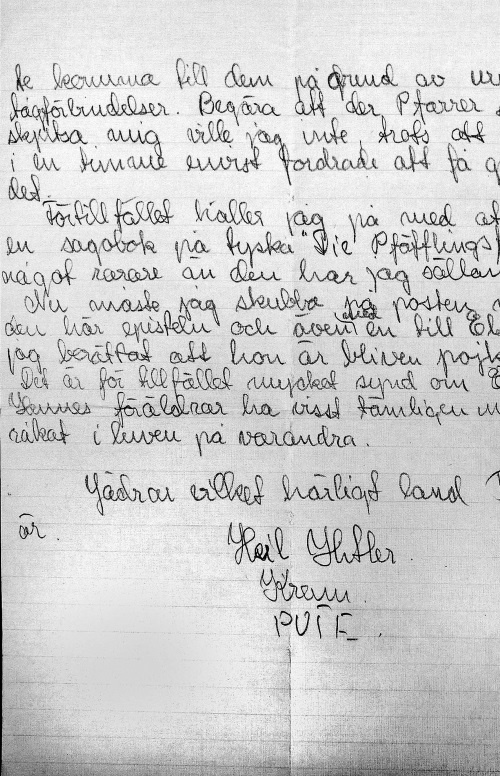 te komma till dem på grund av
tågförbindelser. Begära att der Pfarrer
skjutsa mig ville jag inte, trots att
i en timme envist fordrade att få g
det.
Förtillfället håller jag på med at
en sagobok på tyska "Die Pfäfflings"
något rarare än den har jag sällan
Nu måste jag skubba på posten
den här episteln och även med en till El
jag berättat att hon är bliven pojk
Det är för tillfället mycket synd om
föräldrar ha visst tämligen
råkat i luven på varandra.
Jädrar vilket härligt land
är.
Heil Hitler.
Kram
PUTE.